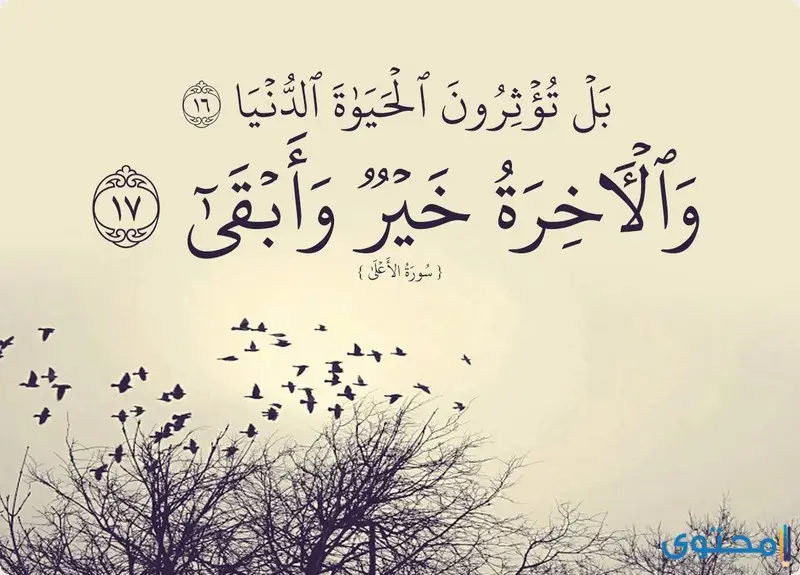 بَلْ تُؤْثِرُونَ ٱلْحَيَوٰةَ ٱلدُّنْيَا ١٦
وَٱلْأَخِرَةُ خَيْرٌ وَأَبْقَىٰٓ ١٧
{ سُورَةُ الأَعْلَىٰ }
محتوى